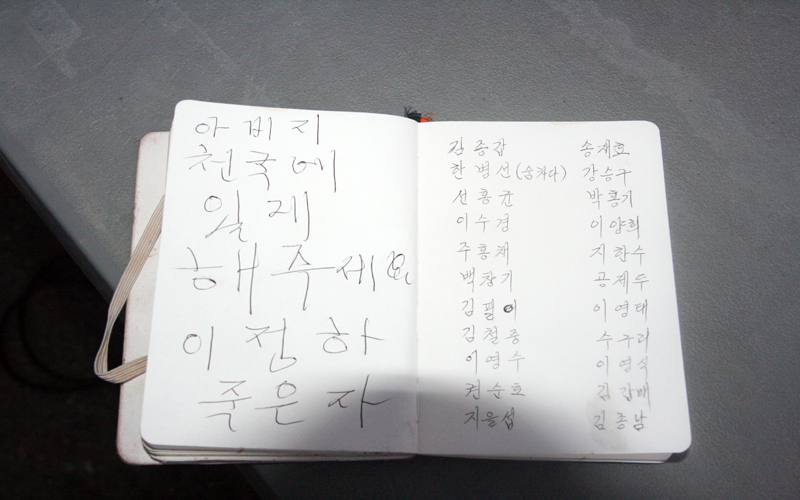 아버지
천국에
일 제
해 주세요
이 전 하
죽은 자
김 종 갑
한 병 선 (숨카다)
선 홍 균
이 수 경
주 홍 채
백 창 기
김 필 이
김 철 종
이 영 수
권 순 호
지 을 섭
송 재 호
강 승 구
박 홍 기
이 양 희
지 한 수
공 제 두
이 영 태
수 구 리
이 영 식
김 갑 배
김 종 남